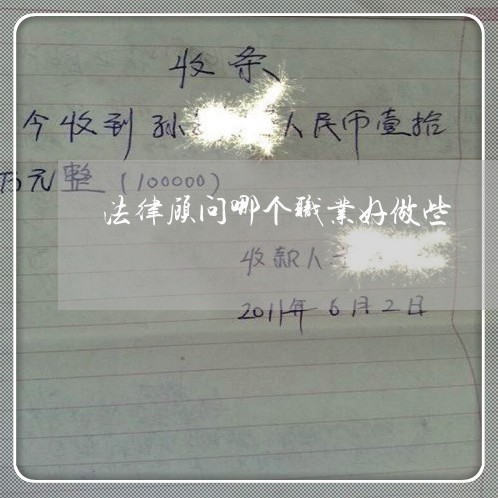 收条
今收到孙 人民币壹拾
万元整(100000)
法律顾问哪个职业好做些
收款人
2011年6月2日